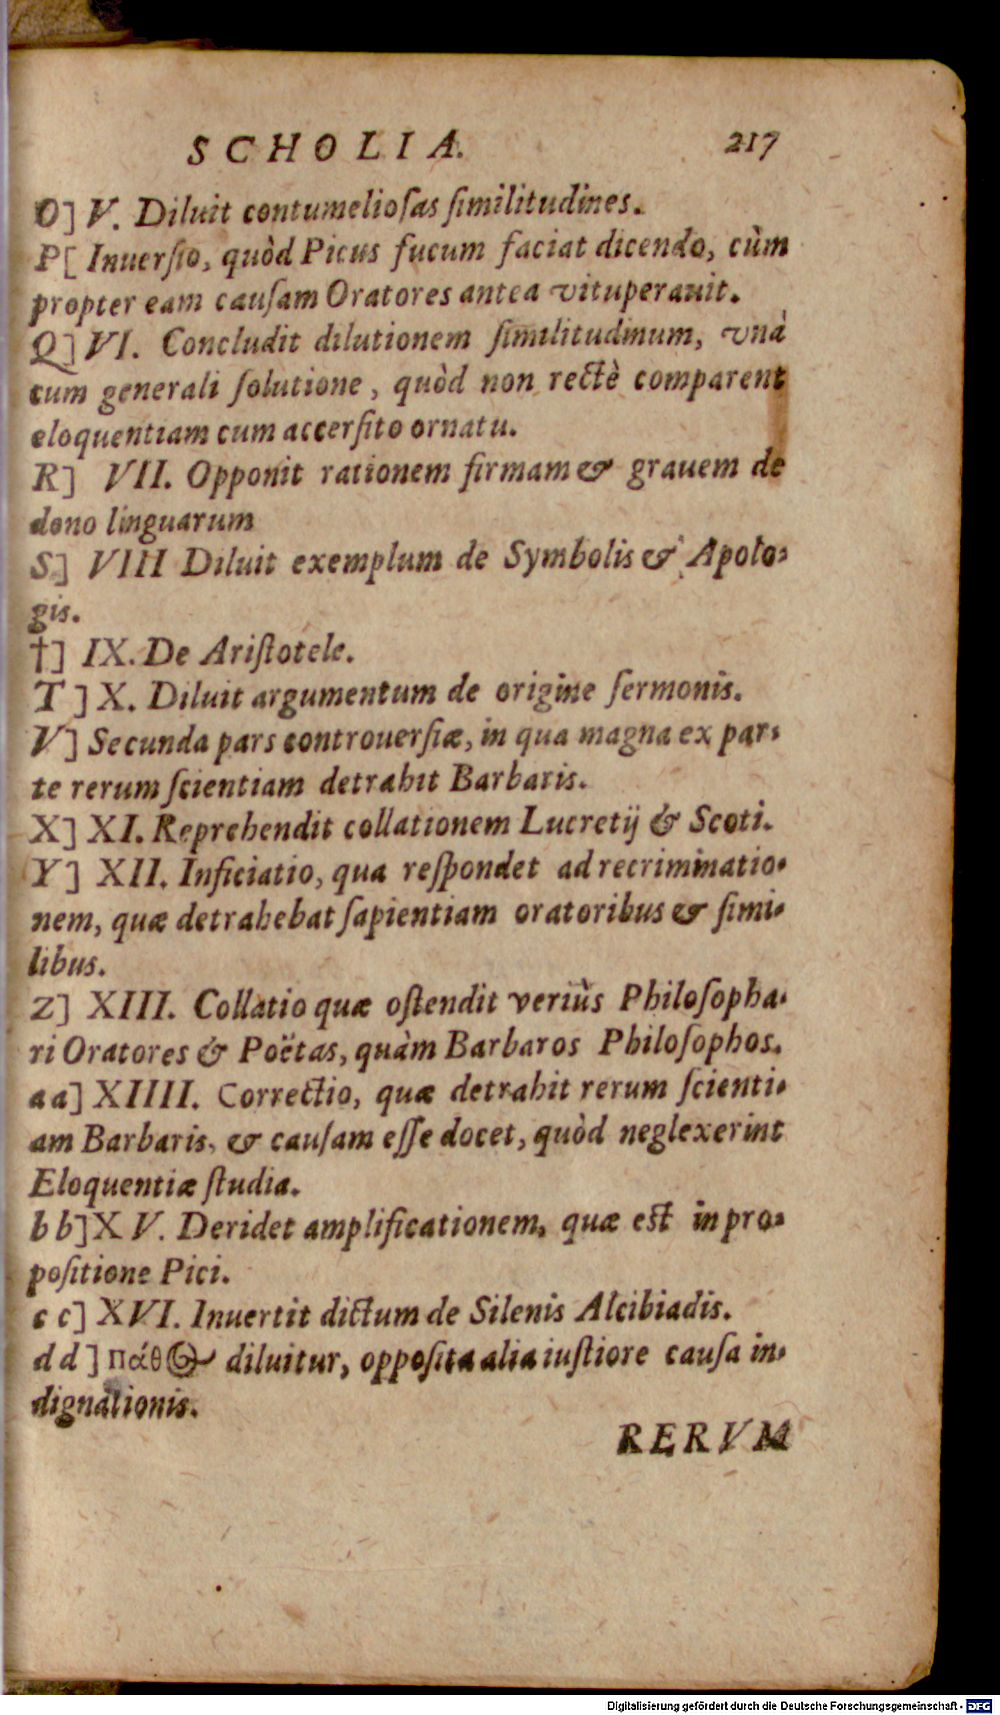 SCHOLIA. 217
O] V. Diluit contumelioſas ſimilitudines.
P[ Inuerſio, quòd Picus fucum faciat dicendo, cùm
propter eam cauſam Oratores antea vituperauit.
Q] VI. Concludit dilutionem ſimilitudinum, vnà
cum generali ſolutione, quòd non rectè comparent
eloquentiam cum accerſito ornatu.
R] VII. Opponit rationem firmam & grauem de
dono linguarum
S] VIII Diluit exemplum de Symbolis & Apolo-
gis.
†] IX. De Ariſtotele.
T] X. Diluit argumentum de origine ſermonis.
V] Secunda pars controuerſiæ, in qua magna ex par-
te rerum ſcientiam detrahit Barbaris.
X] XI. Reprehendit collationem Lucretij & Scoti.
Y] XII. Inficiatio, qua reſpondet ad recriminatio-
nem, quæ detrahebat ſapientiam oratoribus & ſimi-
libus.
Z] XIII. Collatio quæ oſtendit veriùs Philoſopha-
ri Oratores & Poëtas, quàm Barbaros Philoſophos.
aa] XIIII. Correctio, quæ detrahit rerum ſcienti-
am Barbaris, & cauſam eſſe docet, quòd neglexerint
Eloquentiæ ſtudia.
bb] XV. Deridet amplificationem, quæ eſt in pro-
poſitione Pici.
cc] XVI. Inuertit dictum de Silenis Alcibiadis.
dd] πάθος diluitur, oppoſita alia iuſtiore cauſa in-
dignationis.
RERVM
Digitalisierung gefördert durch die Deutsche Forschungsgemeinschaft - DFG